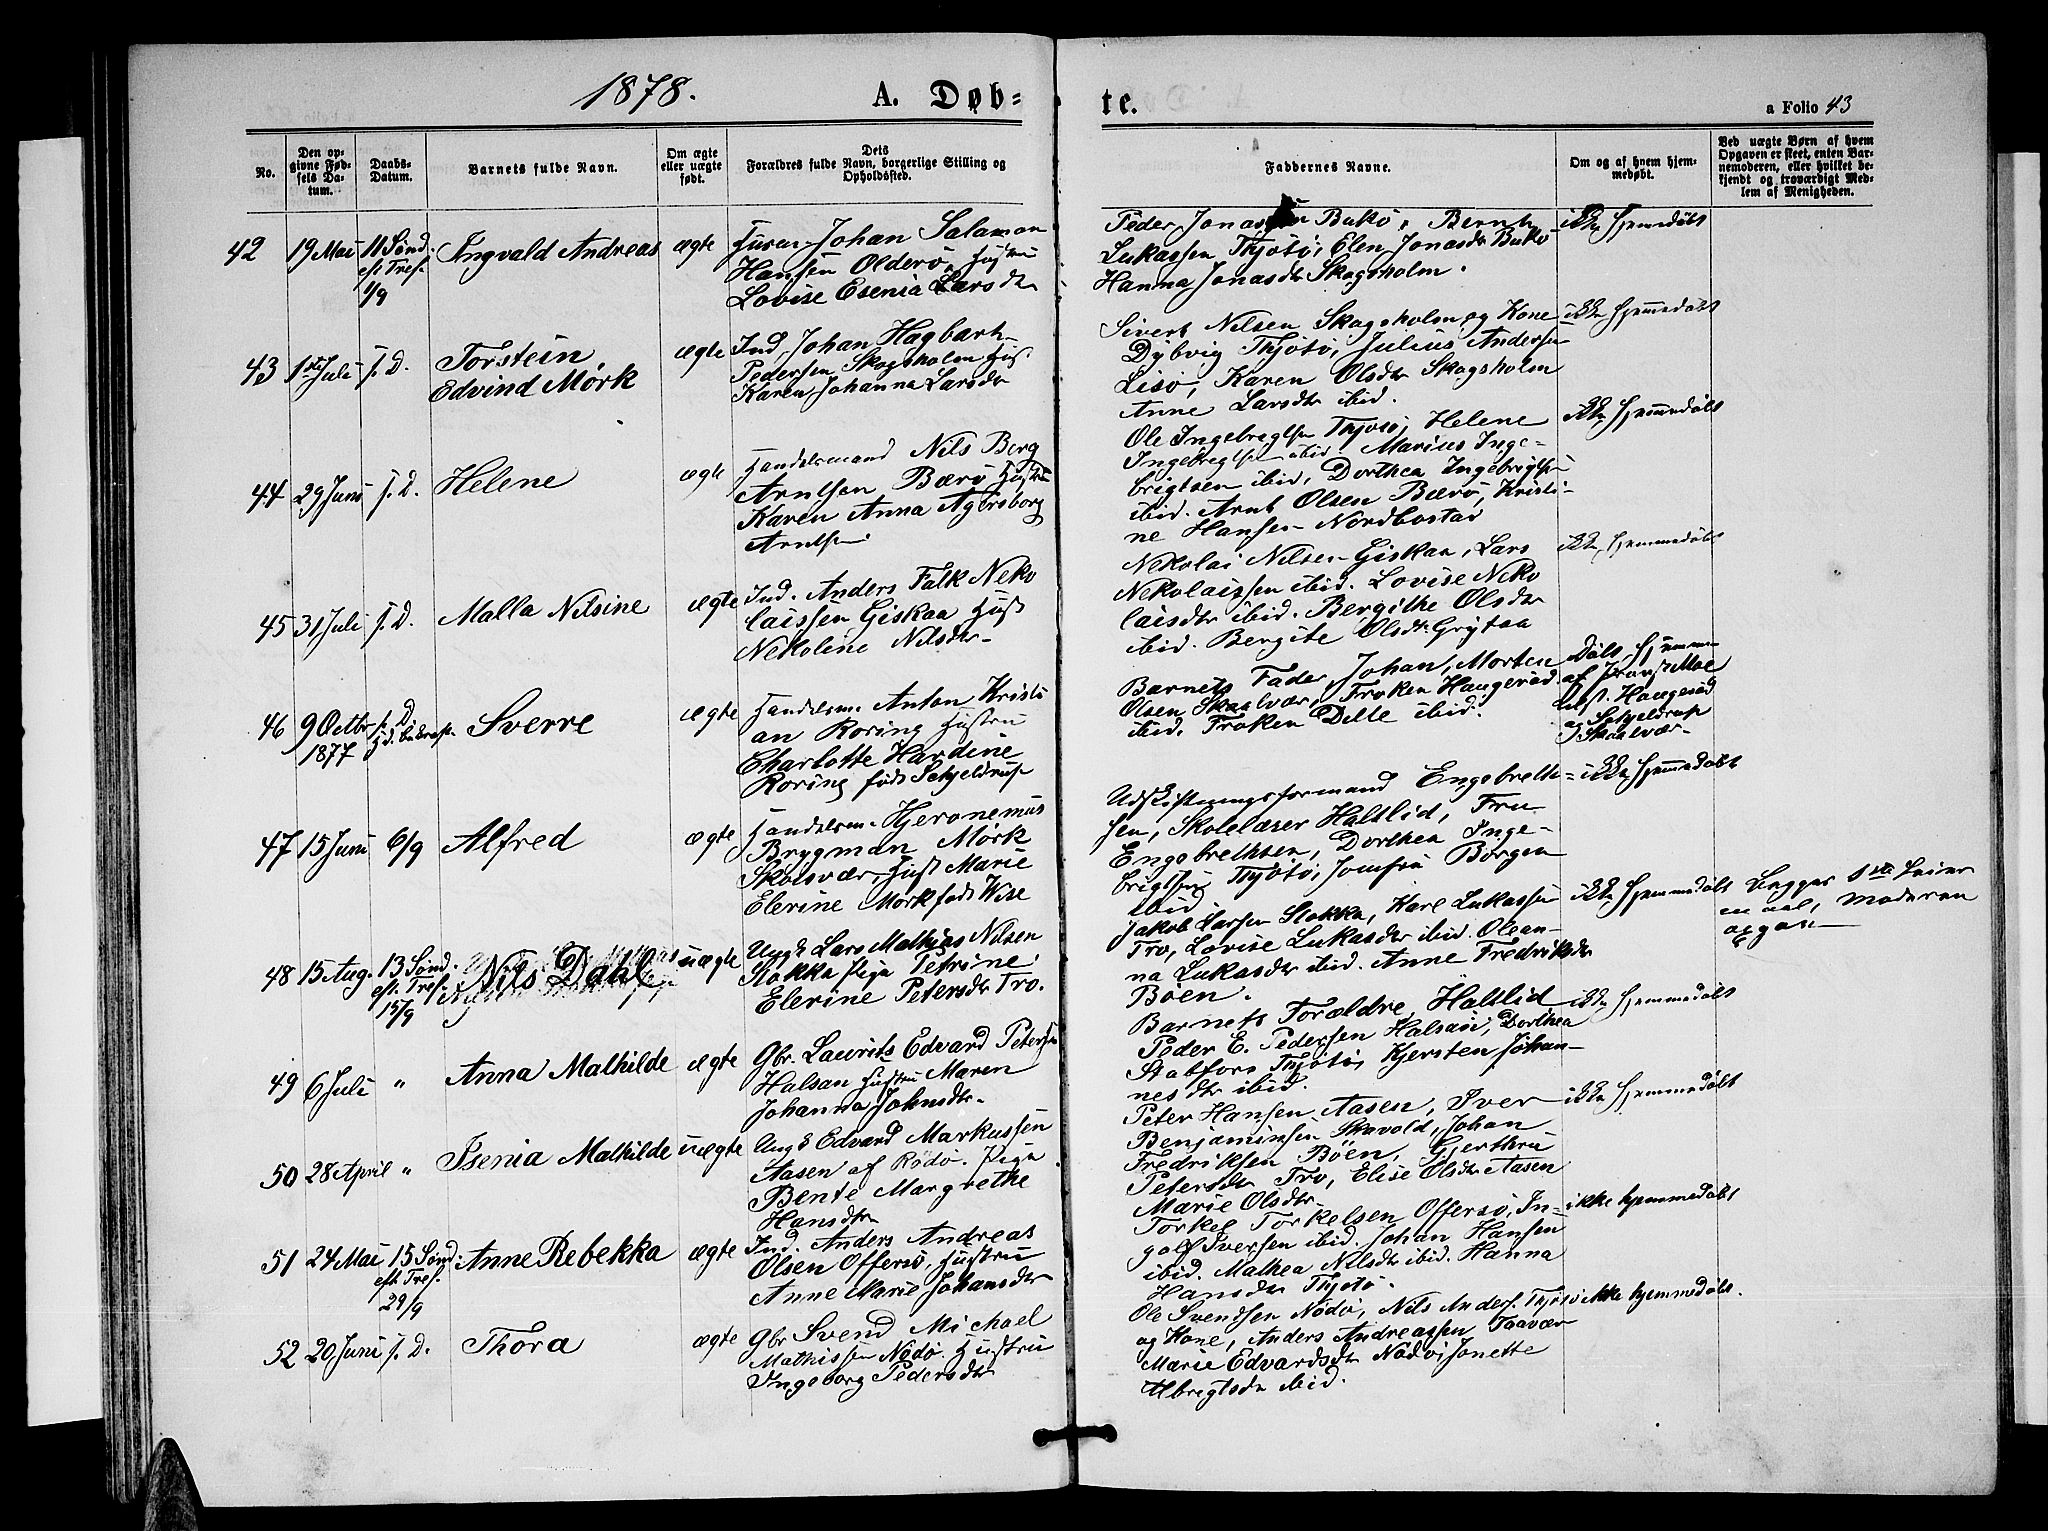 1878.
A. Døb-
te.
a Folio 43
No.
Den op-
givne Fød-
sels Da-
tum.
Daabs-
Datum.
Barnets fulde Navn.
Om ægte
eller uægte
født.
Dets
Forældres fulde Navn, borgerlige Stilling og
Opholdssted.
Faddernes Navne.
Om og af hvem hjem-
medøbt.
Ved uægte Børn af hvem
Opgaven er skeet, enten Bar-
nemoderen, eller hvilket be-
kjendt og troværdigt Med-
lem af Menigheden.
42
19 Mai
11 Sønd.
eft Tref.
1/9
Ingvald Andreas
ægte
Husm. Johan Salamon
Hansen Olderø, Hustru
Lovise Esenia Larsdtr
Peder Jonassen Bukø, Bernt
Lukassen Thjøtø, Elen Jonasdtr Bukø
Hanna Jonasdtr Skogsholm.
ikke hjemmedøbt
43
1ste Juli
s. D.
Torstein
Edvind Mörk
ægte
Ind. Johan Hagbart
Pedersen Skogsholm Hust
Karen Johanna Larsdtr
Sivert Nilsen Skogsholm og Kone
Dybvig Thjøtø, Julius Andersen
Lisø, Karen Olsdtr Skogsholm
Anne Larsdtr ibid.
ikke hjemmedøbt
44
29 Juni
s. D.
Helene
ægte
Handelsmand Nils Berg
Arntsen Bærø Hustru
Karen Anna Agersborg
Arntsen
Ole Ingebregtsen Thjøtø, Helene
Ingebregtsen ibid Marius Inge-
brigtsen ibid, Dorthea Ingebrigtsen
ibid. Arnt Olsen Bærø, Kristi-
ne Hansen Nordbostad
ikke hjemmedøbt
45
31 Juli
s. D.
Malla Nilsine
ægte
Ind. Anders Falk Neko
laissen Giskaa Hust
Nekoline Nilsdtr
Nekolai Nilsen Giskaa, Lars
Nekolaissen ibid. Lovise Neko
laisdtr ibid. Bergithe Olsdtr
ibid. Bergite Olsdtr Grytaa
ikke hjemmedøbt
46
9 Octbr
1877
s. D.
Sverre
ægte
Handelsm. Anton Kristi
an Roring Hustru
Charlotte Hardine
Roring født Schjeldrup
Barnets Fader, Johan, Morten
Olsen Skaalvær, Frøken Haugerød
ibid. Frøken Delle ibid.
døbt hjemme
af Provst Moe
Haugerød
og Schjeldrup
Skaalvær
47
15 Juni
6/9
Alfred
ægte
Handelsm. Hjeronemus
Brygman Mörk
Skaalvær, Hust Marie
Elerine Mørk født Wise
Udskiftningsformand Engebreth-
sen, Skolelærer Haltlid, Fru
Engebrethsen, Dorthea Inge-
brigtsen Thjøtø, Jomfru Borgen
ibid
ikke hjemmedøbt
48
15 Aug.
13 Sønd.
eft. Tref.
15/9
Nils Dahl
uægte
Ungk Lars Mathias Nilsen
Stokka Pige Petrine
Elerine Petersdtr Tro.
Jakob Larsen Stokka, Karl Lukassen
Tro, Lovise Lukasdtr ibid. Olean-
na Lukasdtr ibid. Anne Fredriksdtr
Böen.
ikke hjemmedøbt
Begges 1ste Leier
maal, Moderen
opgav
49
6 Juli
"
Anna Mathilde
ægte
Gbr. Laurits Edvard Petersen
Halsan Hustru Maren
Johanna Johnsdtr
Barnets Forældre, Haltlid
Peder E. Pedersen Halsaa, Dorthea
Stabfors Thjøtø, Kjersten Johan-
nesdtr ibid.
ikke hjemmedøbt
50
28 April
"
Isenia Mathilde
uægte
Ungk Edvard Markussen
Aasen af Rødø. Pige
Bente Margrethe
Hansdtr
Peter Hansen Aasen, Iver
Benjaminsen Skavold, Johan
Fredriksen Böen, Gjerthru
Petersdtr Tro, Elise Olsdtr Aasen
Marie Olsdtr
ikke hjemmedøbt
51
24 Mai
15 Sønd.
eft Tref.
29/9
Anne Rebekka
ægte
Ind. Anders Andreas
Olsen Offersø, Hustru
Anne Marie Johansdtr
Torkel Torkelsen Offersø, In-
golf Iversen ibid. Johan Hansen
ibid. Mathea Nilsdtr ibid. Hanna
Hansdtr Thjøtø.
ikke hjemmedøbt
52
20 Juni
s. D.
Thora
ægte
Gbr Svend Michael
Mathissen Nødø. Hustru
Ingeborg Pedersdtr
Ole Svendsen Nødø, Nils Anders. Thjøtø
og Kone, Anders Andreassen Taavær
Marie Edvardsdtr Nødø, Jonette
Albregtsdtr ibid.
ikke hjemmedøbt.